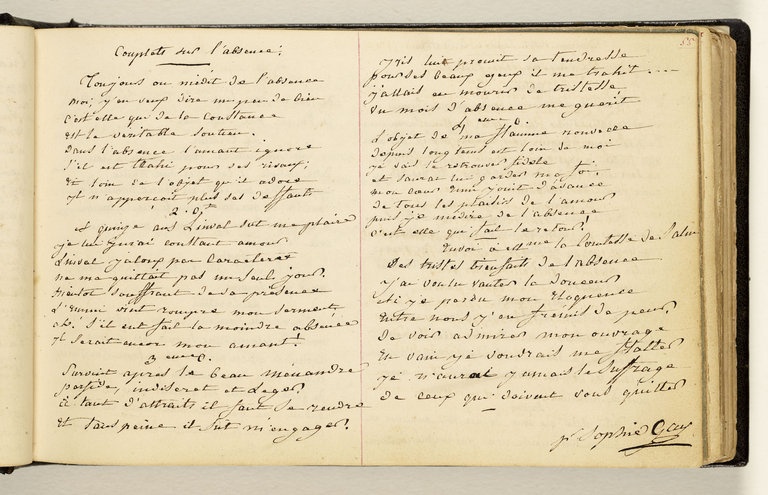 Couplets sur l'absence;
Toujours on médit de l'absence
moi, j'en veux dire un peu de bien
C'est elle qui de la Constance
est le veritable soutien.
Dans l'absence l'amant ignore
S'il est trahi pour ses rivaux;
Et loin de l'objet qu'il adore
Il n'apperçoit plus ses deffauts
2. Ct
A quinze ans Linval sut me plaire
je lui jurai constant amour
Linval jaloux par Caractere
ne me quittait pas un seul jour.
Bientôt souffrant de sa presence
L'ennui vint rompre mon serment,
ah! s'il eut fait la moindre absence
Il serait encor mon amant!
3 eme C.
Survint apres le beau Menandre
perfide, indiscret et Leger
à tant d'attraits il faut se rendre
Et sans peine il sut m'engager.
55
Iris lui promit sa tendresse
pour ses beaux yeux il me trahit....
j'allais en mourir de tristesse,
un mois d'absence me guerit
4 eme C.
L'objet de ma flamme nouvelle
depuis longtems est loin de moi
je sais le retrouver fidele
et saurai lui garder ma foi,
mon coeur ému jouit d'avance
de tous les plaisirs de l'amour
puis-je médire de l'absence
C'est elle qui fait le retour!
Envoi à me la Comtesse de Salm
Des tristes bienfaits de l'absence
j'ai voulu vanter la douceur
Et j'ai perdu mon Eloquence
Entre nous j'en fremis de peur,
De voir admirer mon ouvrage
En vain je voudrais me flatter
je n'aurai jamais le suffrage
de ceux qui doivent vous quitter
pr Sophie Gay